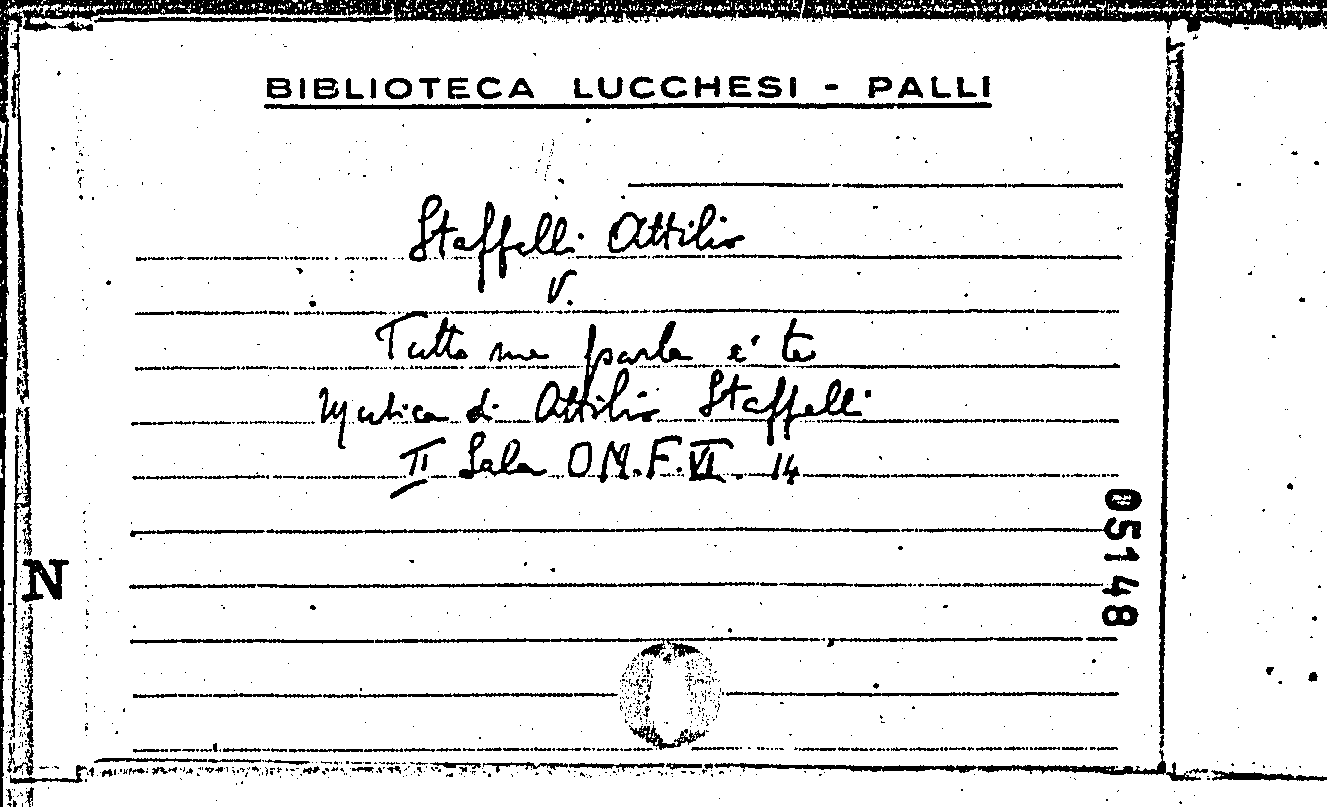 BIBLIOTECA LUCCHESI - PALLI
Staffelli Attilio
V.
Tutto me parla 'e te
Musica di Attilio Staffelli
II Sala O M.F.VI. 14
05148
N